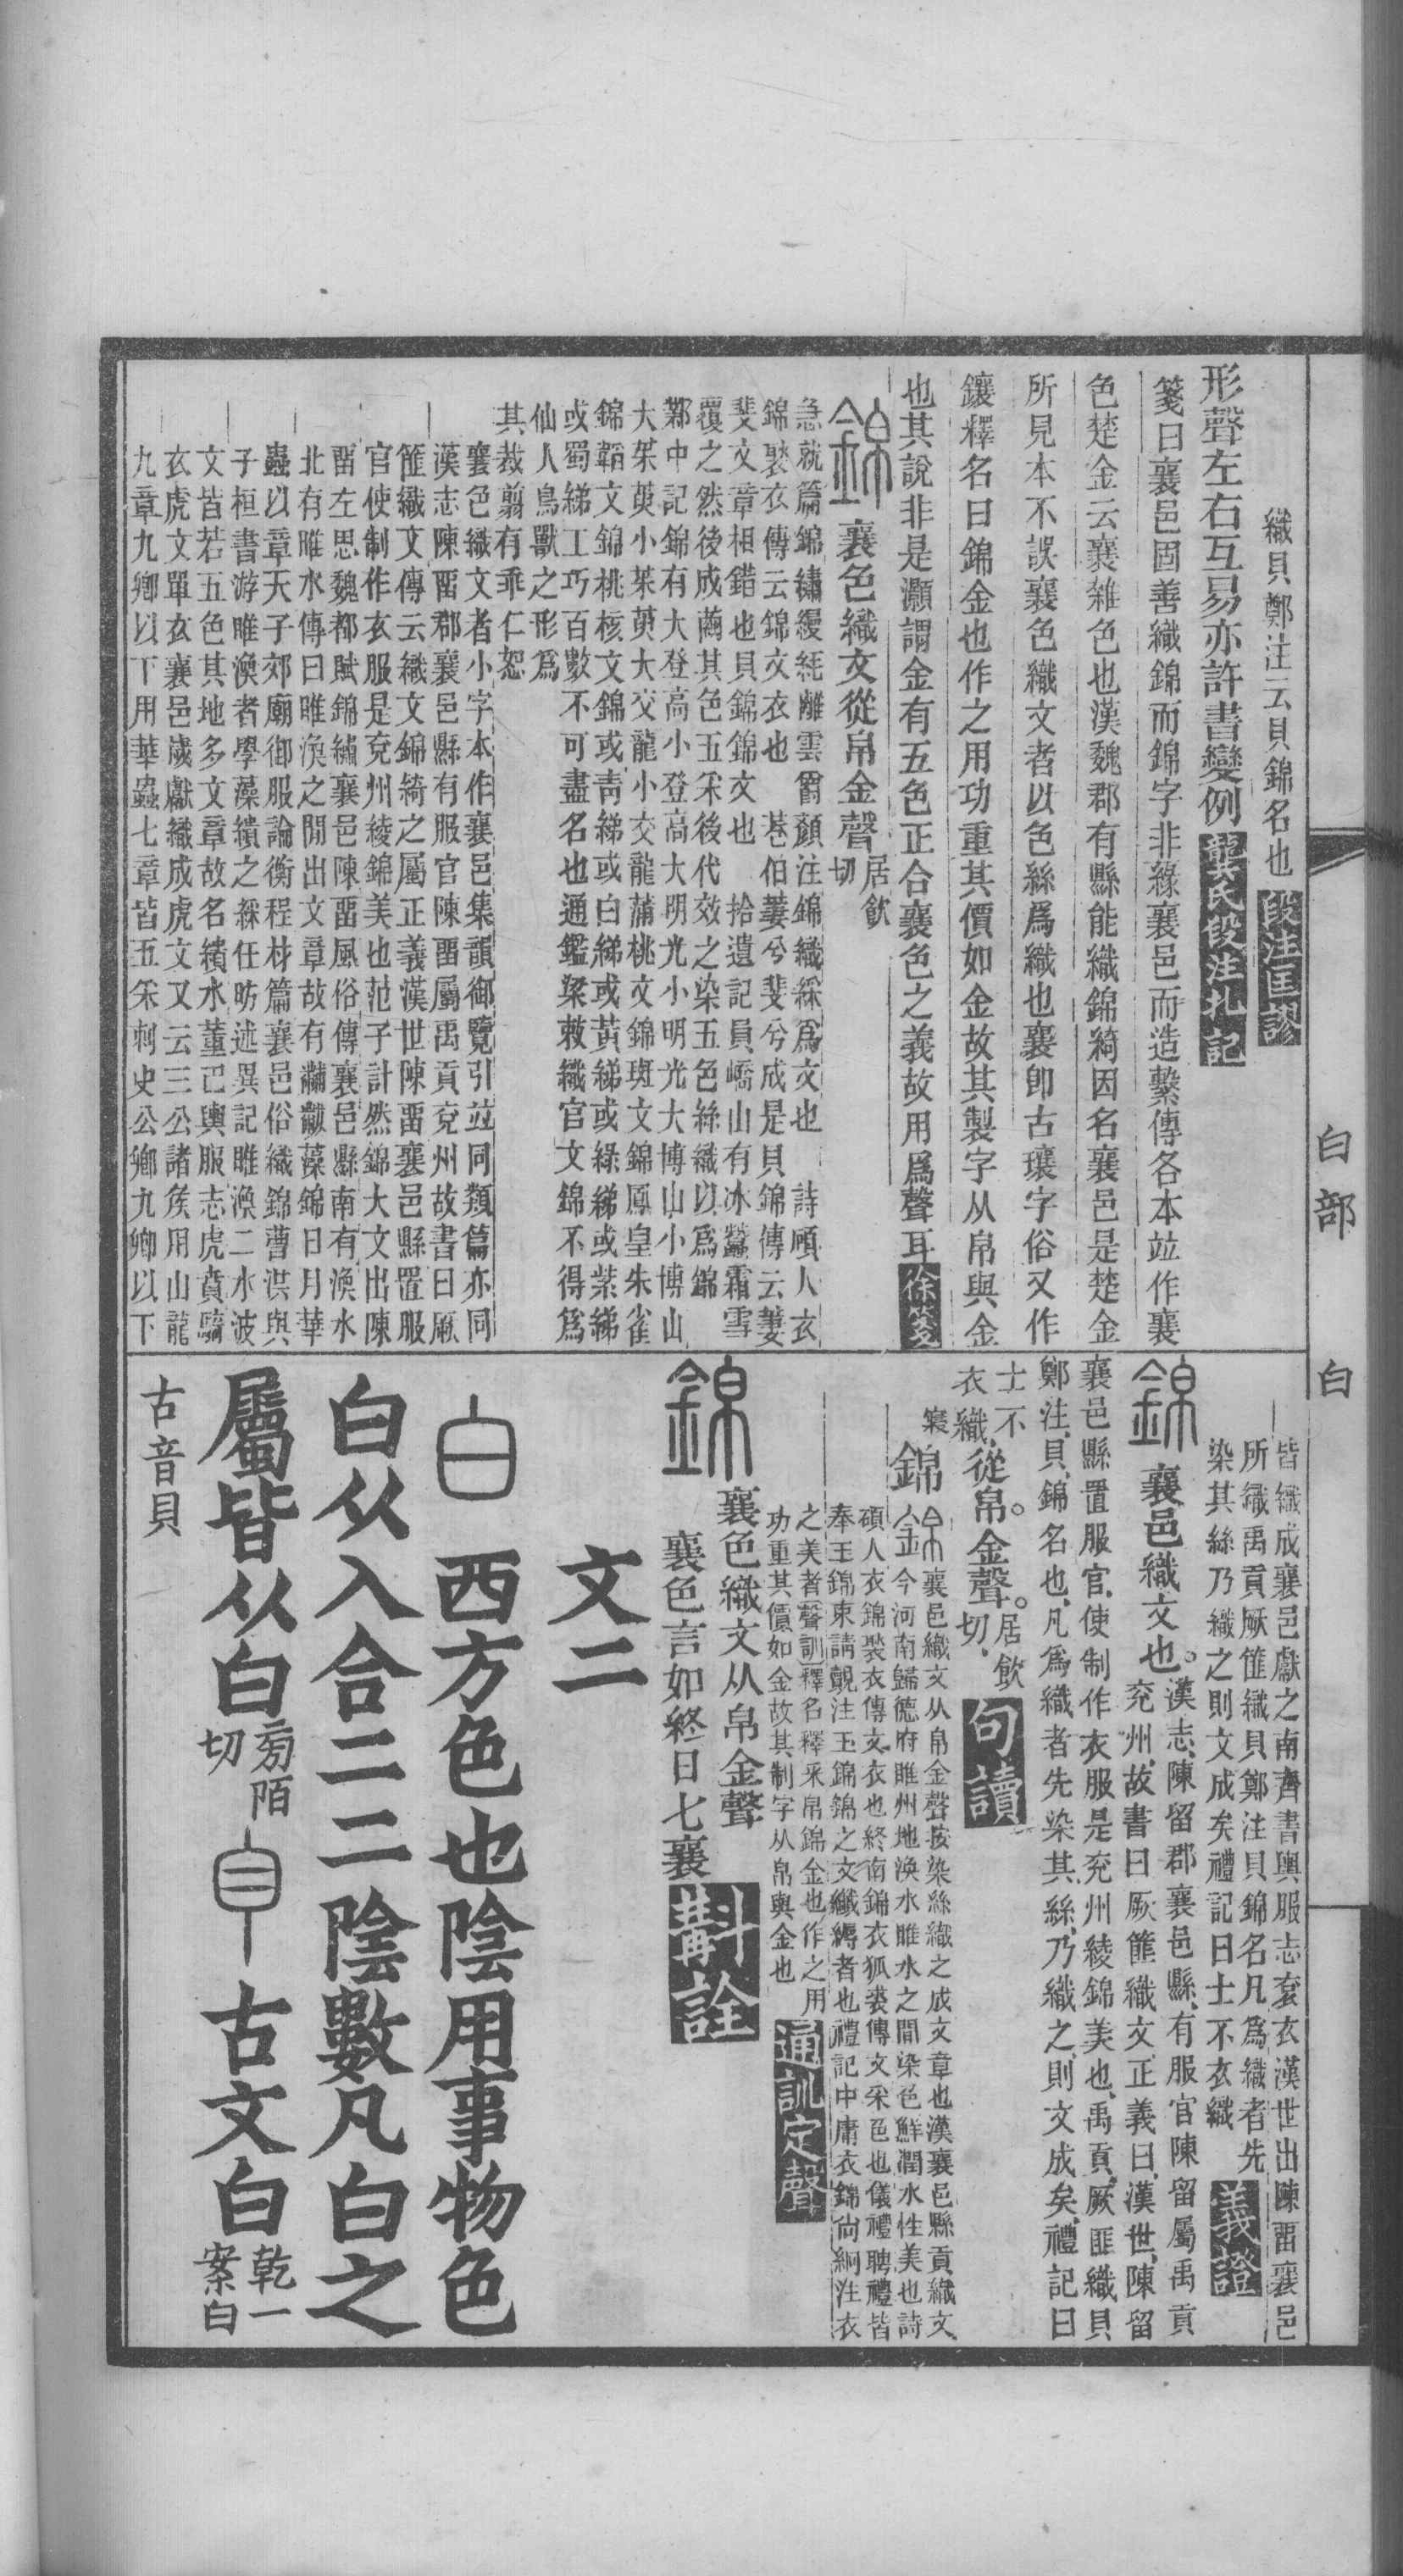 織貝鄭注云貝錦名也 段注匡謬
形聲左右互易亦許書變例 龔氏段注札記
箋曰襄邑固善織錦而錦字非緣襄邑而造繫傳各本竝作襄
色楚金云襄雜色也漢魏郡有縣能織錦綺因名襄邑是楚金
所見本不誤襄色織文者以色絲爲織也襄卽古瓖字俗又作
鑲釋名曰錦金也作之用功重其價如金故其製字从帛與金
也其說非是灝謂金有五色正合襄色之義故用爲聲耳 徐箋
錦 襄色織文從帛金聲 居飲切
急就篇錦繡縵䋤離雲爵顏注錦織綵爲文也 詩碩人衣
錦褧衣傳云錦文衣也 巷伯萋兮斐兮成是貝錦傳云萋
斐文章相錯也貝錦錦文也 拾遺記員嶠山有冰蠶霜雪
覆之然後成繭其色五采後代效之染五色絲織以爲錦
鄴中記錦有大登高小登高大明光小明光大博山小博山
大茱萸小茱萸大交龍小交龍蒲桃文錦斑文錦鳳皇朱雀
錦韜文錦桃核文錦或青綈或白綈或黃綈或綠綈或紫綈
或蜀綈工巧百數不可盡名也通鑑梁敕織官文錦不得爲
仙人鳥獸之形爲
其裁翦有乖仁恕
襄色織文者小字本作襄邑集韻御覽引竝同類篇亦同
漢志陳畱郡襄邑縣有服官陳畱屬禹貢兗州故書曰厥
篚織文傳云織文錦綺之屬正義漢世陳畱襄邑縣置服
官使制作衣服是兗州綾錦美也范子計然錦大文出陳
畱左思魏都賦錦繡襄邑陳畱風俗傳襄邑縣南有渙水
北有睢水傳曰睢渙之閒出文章故有黼黻藻錦日月華
蟲以章天子郊廟御服論衡程材篇襄邑俗織錦曹洪與
子桓書游睢渙者學藻繢之綵任昉述異記睢渙二水波
文皆若五色其地多文章故名繢水董巴輿服志虎賁騎
衣虎文單衣襄邑歲獻織成虎文又云三公諸矦用山龍
九章九鄉以下用華蟲七章皆五采刺史公鄉九卿以下
皆織成襄邑獻之南齊書輿服志袞衣漢世出陳畱襄邑
所織禹貢厥篚織貝鄭注貝錦名凡爲織者先
染其絲乃織之則文成矣禮記曰士不衣織 義證
錦 襄邑織文也。漢志、陳留郡襄邑縣、有服官陳留屬禹貢
兗州、故書曰厥篚織文、正義曰、漢世、陳留
襄邑縣置服官、使制作衣服是兗州綾錦美也、禹貢、厥匪織貝
鄭注、貝、錦名也、凡爲織者先染其絲、乃織之、則文成矣、禮記曰
士不
衣織、從帛。金聲。居飲切、 句讀
錦 錦襄邑織文从帛金聲按染絲織之成文章也漢襄邑縣貢織文、
今河南歸德府睢州地渙水睢水之間染色鮮潤水性美也詩
碩人衣錦褧衣傳文衣也終南錦衣狐裘傳文采色也儀禮聘禮皆
奉玉錦束請覿注玉錦錦之文纖縟者也禮記中庸衣錦尙絅注衣
之美者聲訓釋名釋采帛錦金也作之用
功重其價如金故其制字从帛與金也 通訓定聲
錦 襄色織文从帛金聲
襄色言如終日七襄 斠詮
文二
白 西方色也陰用事物色
白从入合二二陰數凡白之
屬皆从白 㫄陌切 古文白 乾一案白
古音貝
白部 白